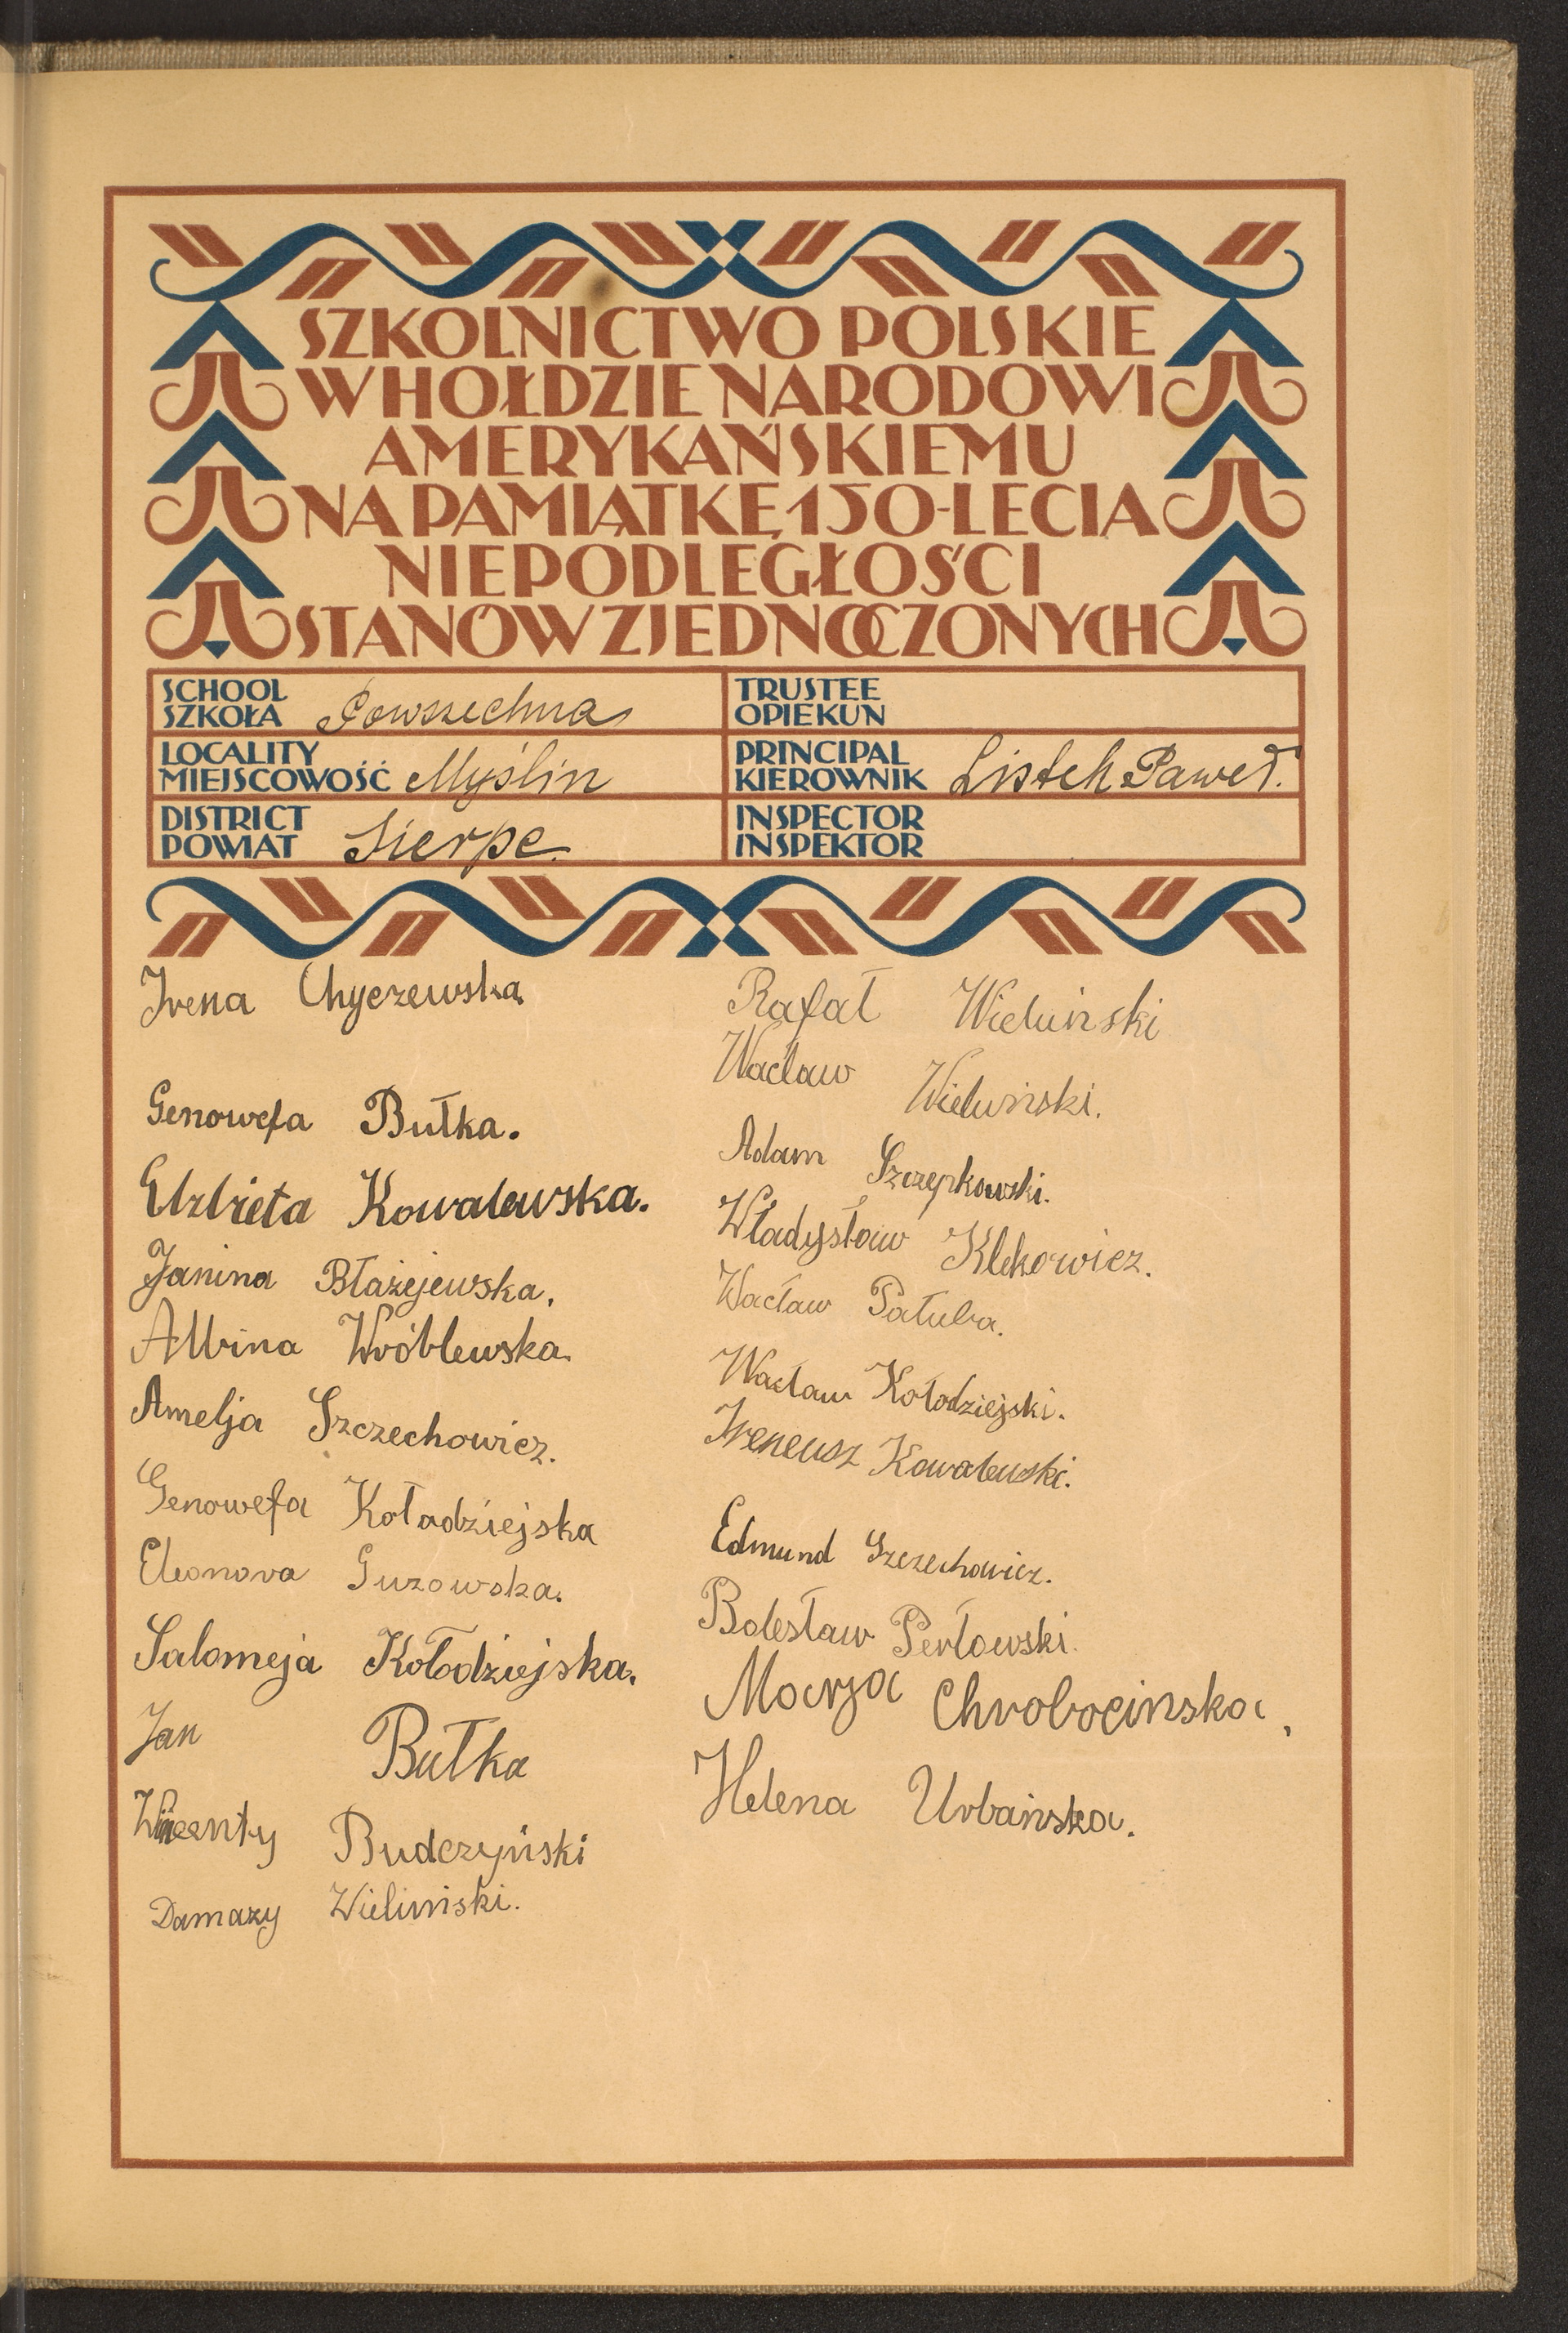 SZKOLNICTWO POLSKIE
W HOŁDZIE NARODOWI
AMERYKAŃSKIEMU
NA PAMIĄTKĘ 150-LECIA
NIEPODLEGŁOŚCI
STANÓW ZJEDNOCZONYCH
SCHOOL
SZKOŁA Powszechna
LOCALITY
MIEJSCOWOŚĆ Myślin
DISTRICT
POWIAT Sierpc
TRUSTEE
OPIEKUN
PRINCIPAL
KIEROWNIK Listek Paweł.
INSPECTOR
INSPEKTOR
Irena Chyczewska
Genowefa Bułka.
Elzbieta Kowalewska.
Janina Błażejewska.
Albina Wróblewska.
Amelja Szczechowicz.
Genowefa Kołodziejska
Eleonora Guzowska.
Salomeja Kołodziejska.
Jan Bułka
Wincenty Budczyński
Damazy Wieliński.
Rafał Wieluński
Wacław Wieluński.
Adam Szczepkowski.
Władysław Klekowicz.
Wacław Pałuba.
Wacław Kołodziejski.
Ireneusz Kowalewski.
Edmund Szczechowicz.
Bolesław Perłowski.
Marja Chrobocinska,
Helena Urbańska.